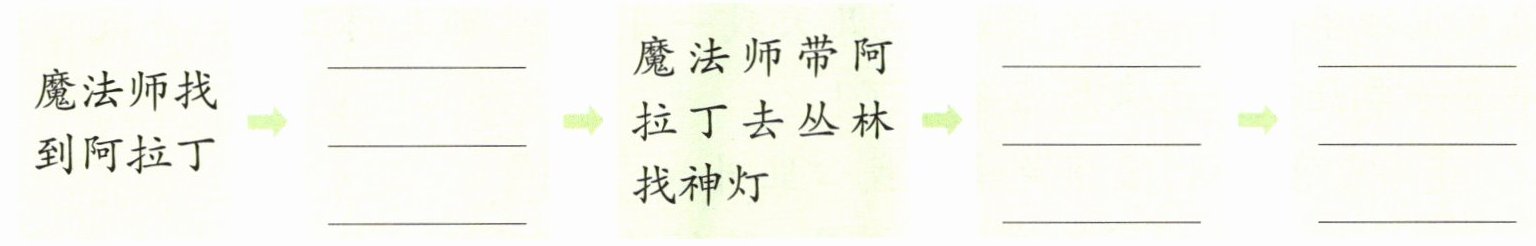 魔法师找
到阿拉丁
魔法师带阿
拉丁去丛林
找神灯